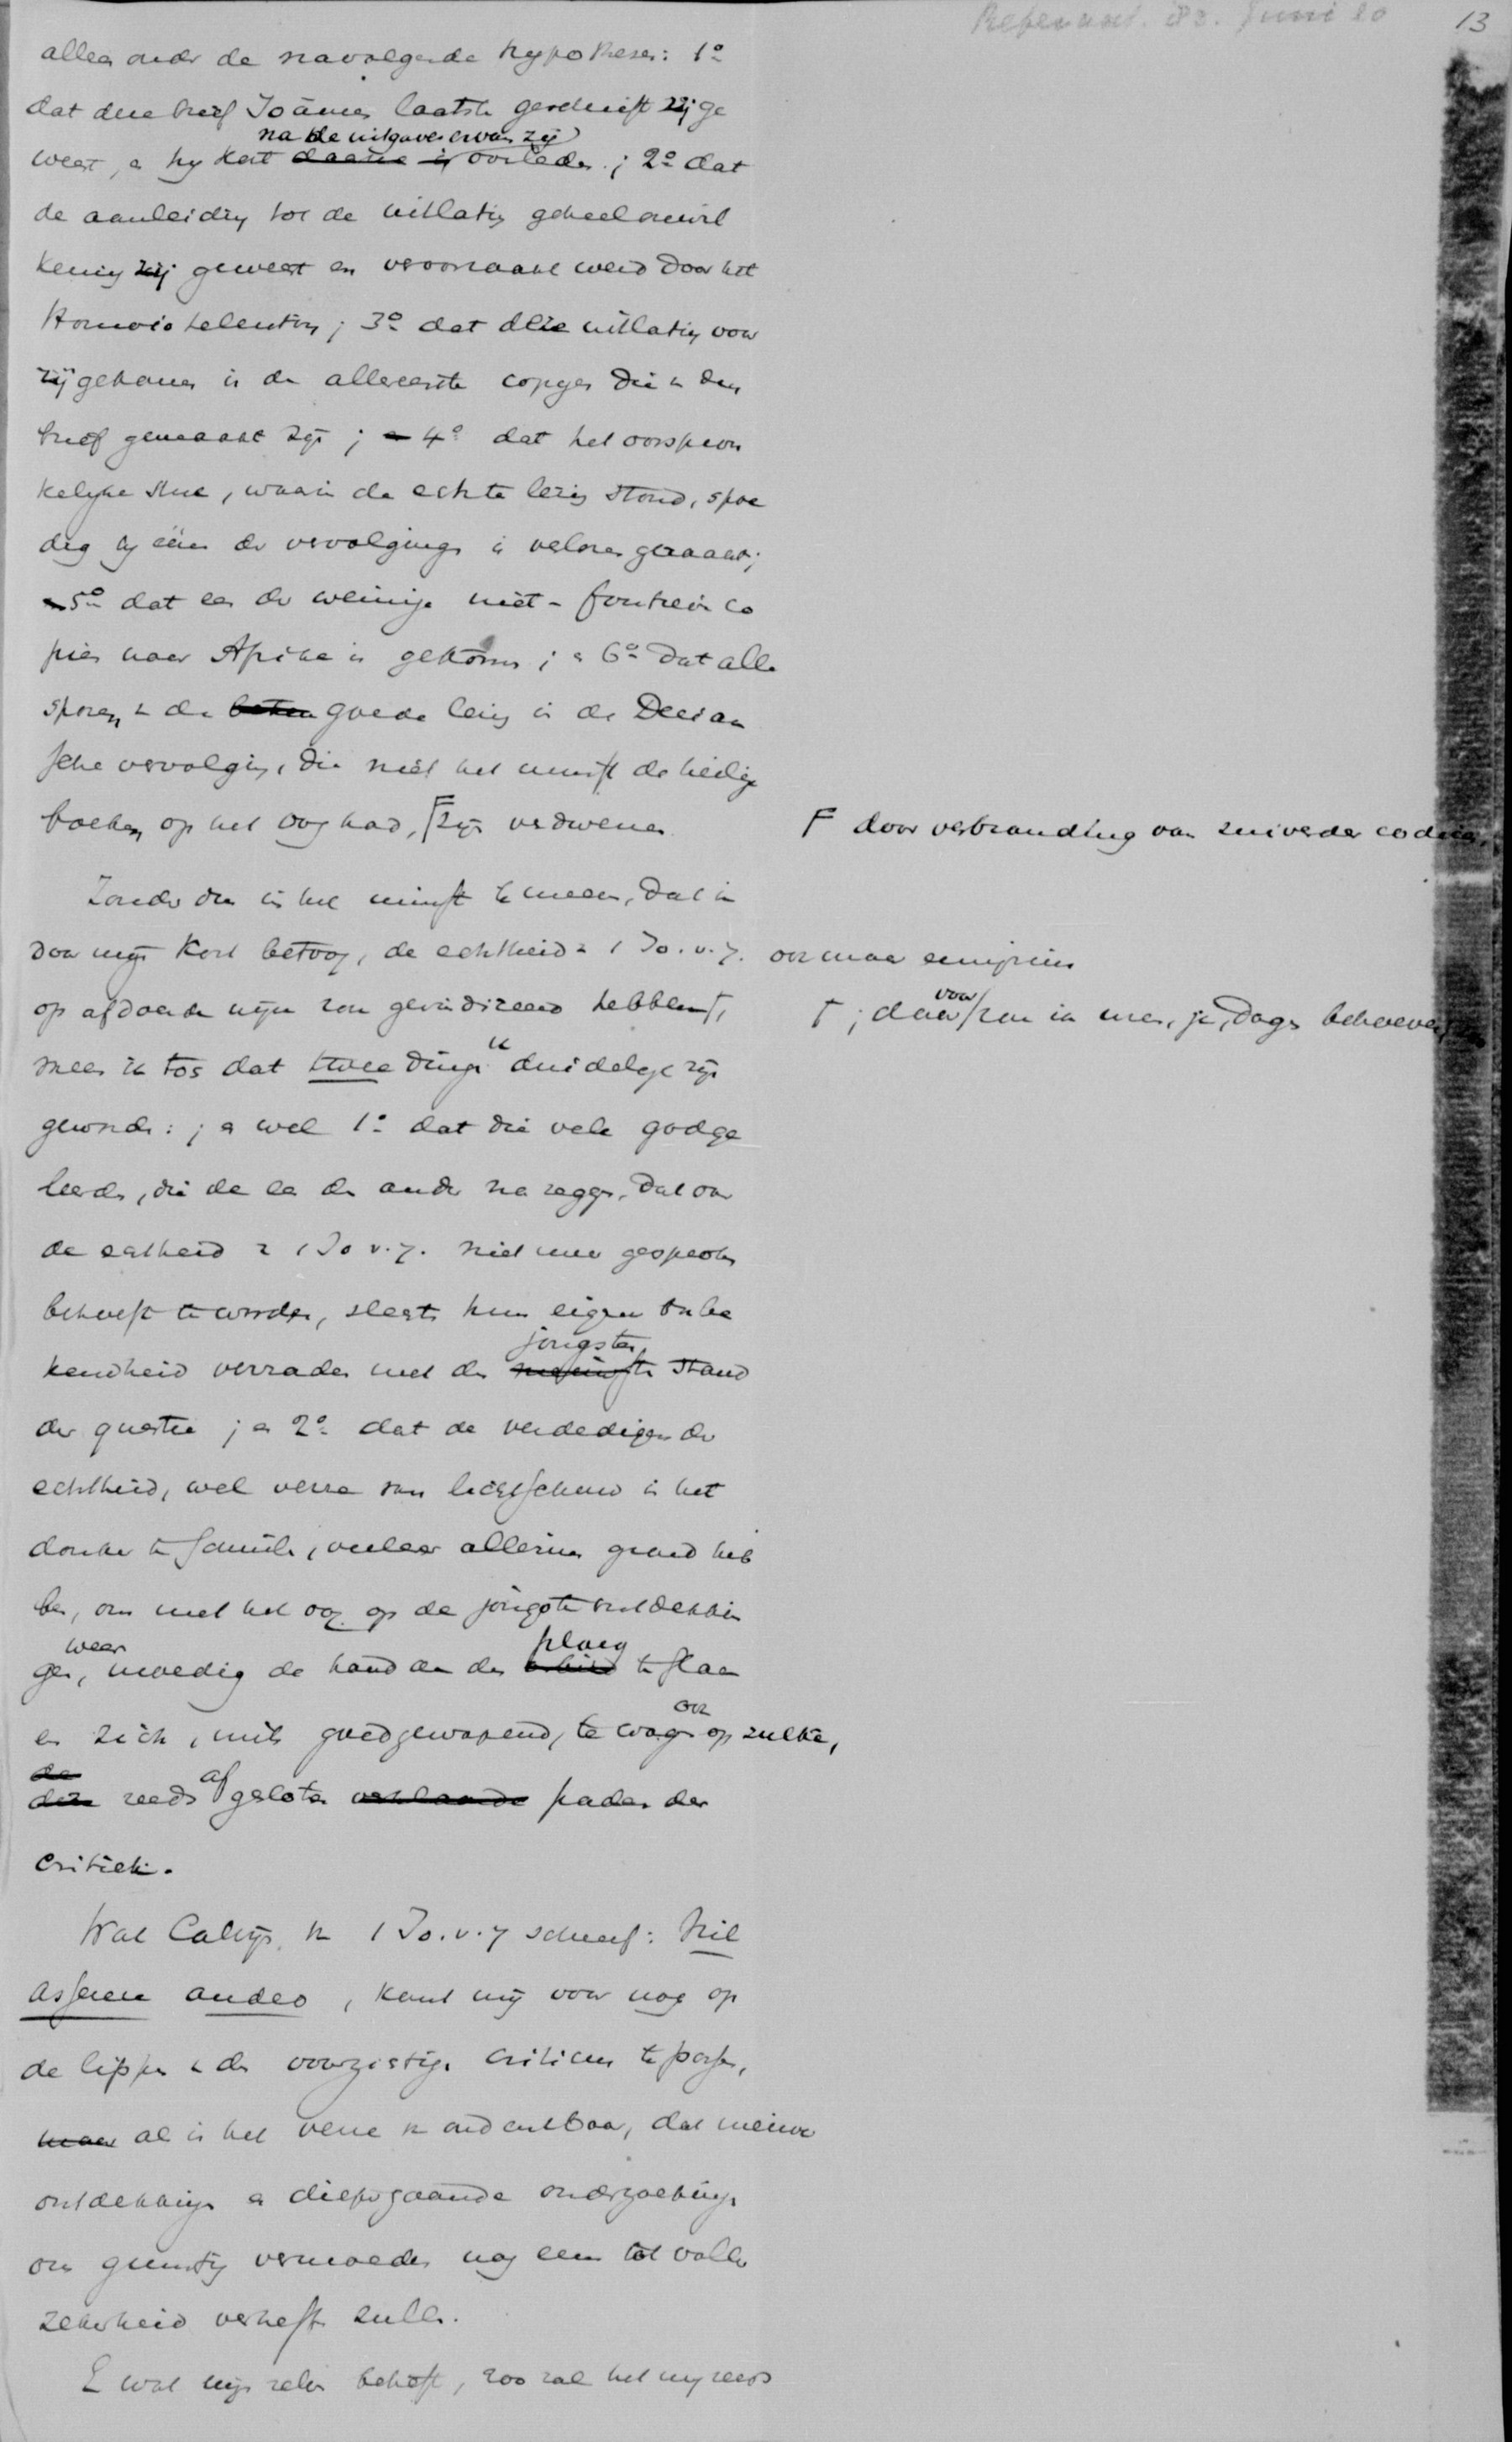 13
alleen onder de navolgende hypothesen: 1º
dat deze brief Joännes laatste geschrift zij ge
na de uitgave ervan zij
weest, en hy kort daarna is overleden; 2º dat
de aanleiding tot de uitlating geheel onwil
keurig zij geweest en veroorzaakt werd door het
Homoioteleuton; 3º dat deze uitlating voor
zij gekomen in de allereerste copyen die van den
brief gemaakt zijn; en 4º dat het oorspron
kelyke stuk, waarin de echte lezing stond, spoe
dig by één der vervolgingen is verloren geraakt;
en 5º dat een der weinige niet-foutieve co
pien naar Afrika is gekomen; en 6º dat alle
sporen van de goede lezing in de Deciaan
sche vervolging, die niet het minst de heilige
boeken op het oog had, zijn verdwenen.
door verbranding van zuiverder codices.
Zonder dus in het minst te meenen, dat ik
door mijn kort betoog, de echtheid van 1 Jo. v. 7. ook maar eenigzins
op afdoende wijze zou gevindiceerd hebben,
; daarvoor zou ik meer, ja, dagen behoeven
meen ik tog dat twee dingen u duidelyk zijn
geworden: ; en wel 1º dat die vele godge
leerden, die de een den ander na zeggen, dat over
de echtheid van 1 Jo v. 7. niet meer gesproken
behoeft te worden, slechts hun eigen onbe
kendheid verraden met den jongsten stand
der questie; en 2º dat de verdedigers der
echtheid, wel verre van lichtschuw in het
donker te schuilen, veeleer allerminst grond heb
ben, om met het oog op de jongste ontdekkin
gen, weer moedig de hand aan den ploeg te slaan
en zich, mits goedgewapend, te wagen ook op zulke,
reeds afgesloten paden der
critiek.
Wat Calvijn van 1 Jo. v. 7 schreef: Nil
asserere audeo, komt mij voor nog op
de lippen van den voorzigtigen criticus te passen,
maar al is het verre van ondenkbaar, dat nieuwe
ontdekkingen en diepgaande onderzoekingen
ons gunstig vermoeden nog eens tot volle
zekerheid verheffen zullen.
En wat mijn zelven betreft, zoo zal het mij reeds